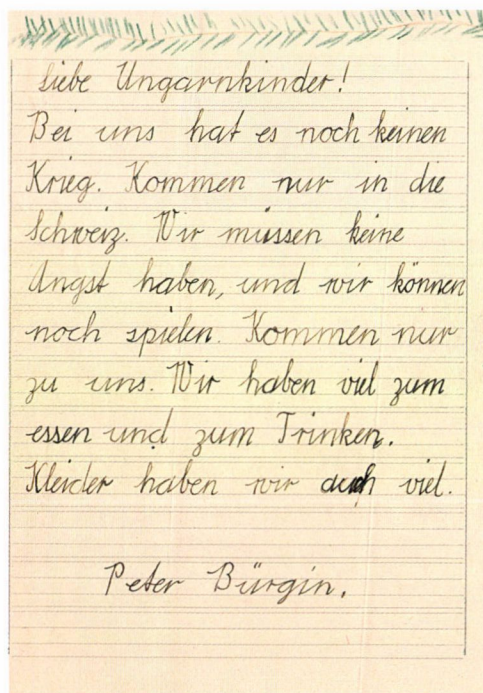 Liebe Ungarnkinder!
Bei uns hat es noch keinen
Krieg. Kommen nur in die
Schweiz. Wir müssen keine
Angst haben, und wir können
noch spielen. Kommen nur
zu uns. Wir haben viel zum
essen und zum Trinken.
Kleider haben wir auch viel.
Peter Bürgin.